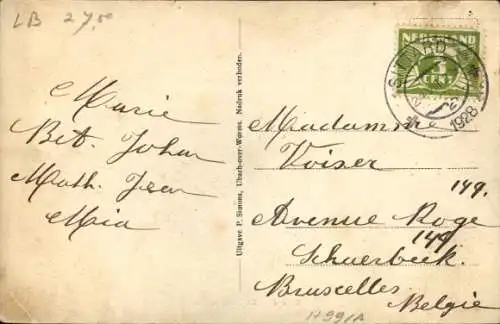 LB 27,50
Marie
Bet. Johan
Math. Jean
Mia
Uitgave P. Simons, Ubach-over-Worms. Nadruk verboden.
NEDERLAND
3
CENT
1928
Madamme
Voiser
149.
Avenue Roge
149
Schuerbeek.
Bruxcelles
Belgie
H99/A